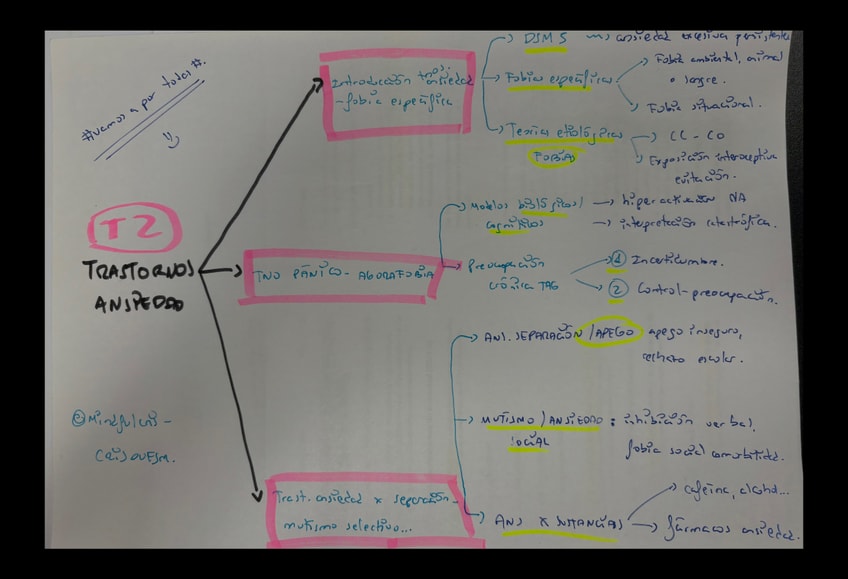 #vamos a por todas #.
T2
TRASTORNOS
ANSIEDAD
@Mindfulness-
Introducción tnos.
ansiedad
-fobia específica
DSM 5 ansiedad excesiva persistente
Fobias específicas
Fobia ambiental, animal
o sangre.
Fobia situacional.
Teorías etiológicas
FOBIAS
CC - CO
Exposición interoceptiva
evitación.
TNO PÁNICO - AGORAFOBIA
Modelos biológicos/
cognitivos
hiperactivación NA
interpretación catastrófica.
Preocupación
crónica TAG
1 Incertidumbre.
2 Control-preocupación.
Trast. ansiedad x separación-
mutismo selectivo...
ANS. SEPARACIÓN / APEGO apego inseguro,
rechazo escolar.
MUTISMO / ANSIEDAD : inhibición verbal,
SOCIAL fobia social comorbilidad.
ANS X SUSTANCIAS
cafeína, alcohol...
fármacos ansiedad.